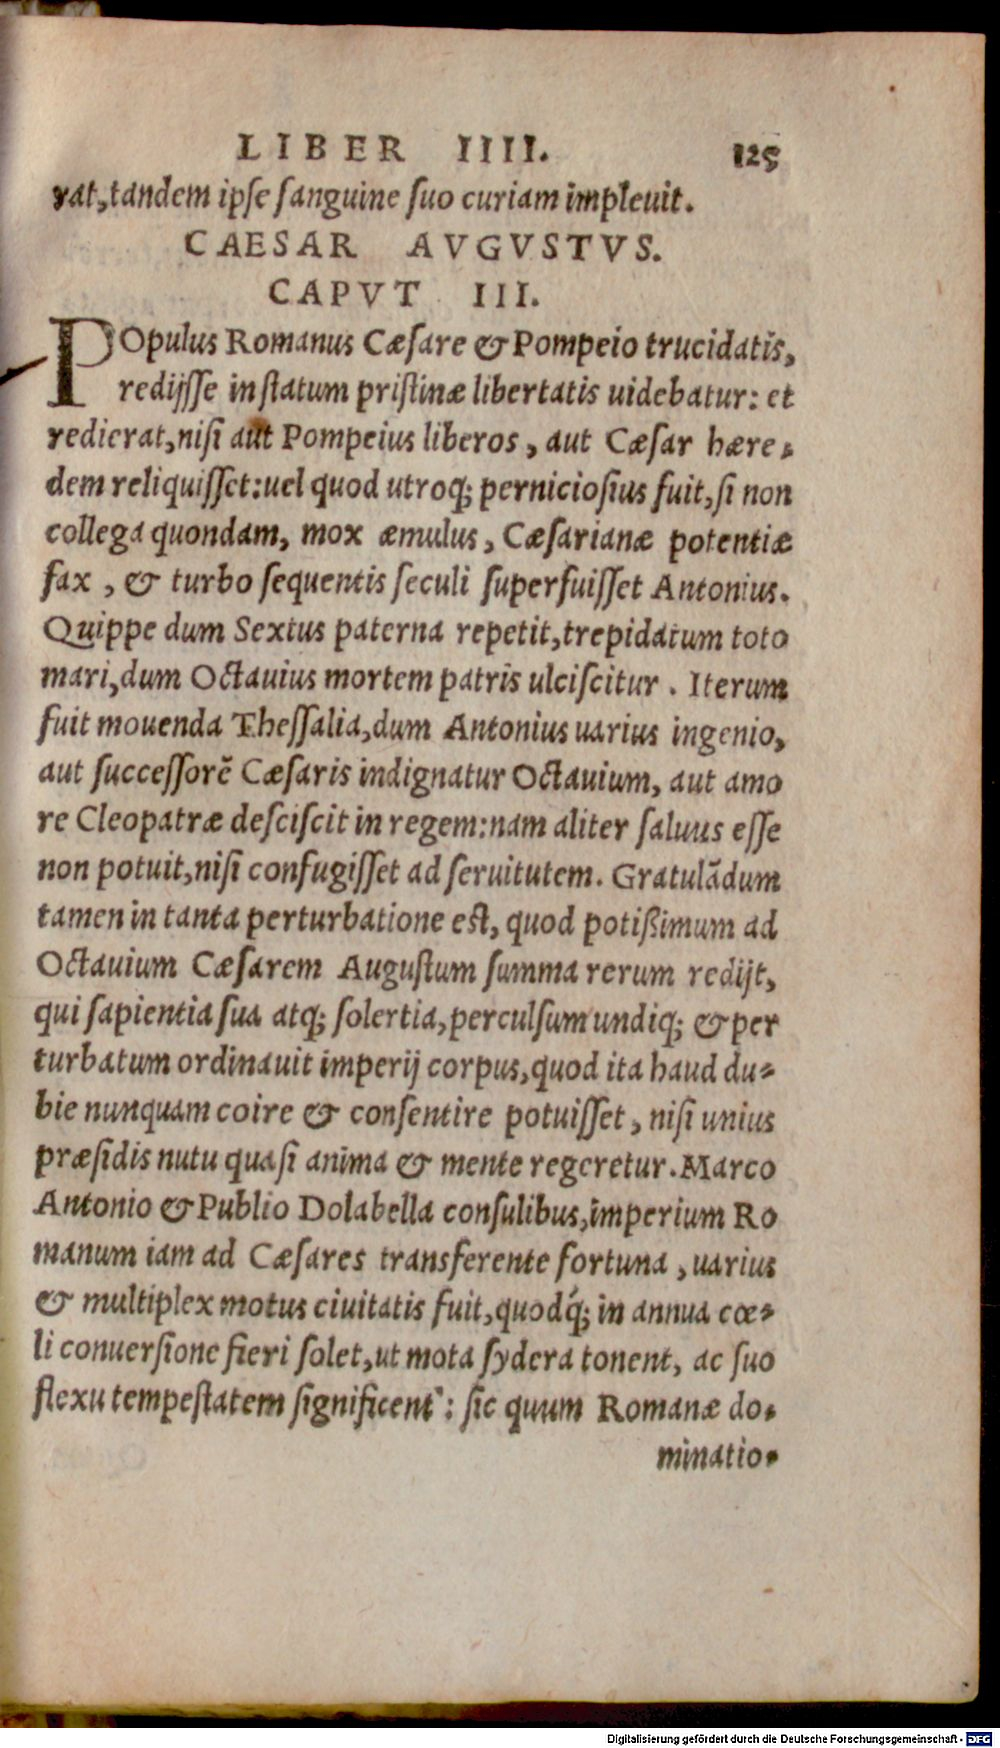 LIBER IIII. 125
rat, tandem ipse sanguine suo curiam impleuit.
CAESAR AVGVSTVS.
CAPVT III.
POpulus Romanus Cæsare & Pompeio trucidatis,
redijsse in statum pristinæ libertatis uidebatur: et
redierat, nisi aut Pompeius liberos, aut Cæsar hære-
dem reliquisset: uel quod utroq; perniciosius fuit, si non
collega quondam, mox æmulus, Cæsarianæ potentiæ
fax, & turbo sequentis seculi superfuisset Antonius.
Quippe dum Sextus paterna repetit, trepidatum toto
mari, dum Octauius mortem patris ulciscitur. Iterum
fuit mouenda Thessalia, dum Antonius uarius ingenio,
aut successorē Cæsaris indignatur Octauium, aut amo
re Cleopatræ desciscit in regem: nam aliter saluus esse
non potuit, nisi confugisset ad seruitutem. Gratulādum
tamen in tanta perturbatione est, quod potißimum ad
Octauium Cæsarem Augustum summa rerum redijt,
qui sapientia sua atq; solertia, perculsum undiq; & per
turbatum ordinauit imperij corpus, quod ita haud du-
bie nunquam coire & consentire potuisset, nisi unius
præsidis nutu quasi anima & mente regeretur. Marco
Antonio & Publio Dolabella consulibus, imperium Ro
manum iam ad Cæsares transferente fortuna, uarius
& multiplex motus ciuitatis fuit, quodq́; in annua cœ-
li conuersione fieri solet, ut mota sydera tonent, ac suo
flexu tempestatem significent: sic quum Romanæ do-
minatio-
Digitalisierung gefördert durch die Deutsche Forschungsgemeinschaft - DFG